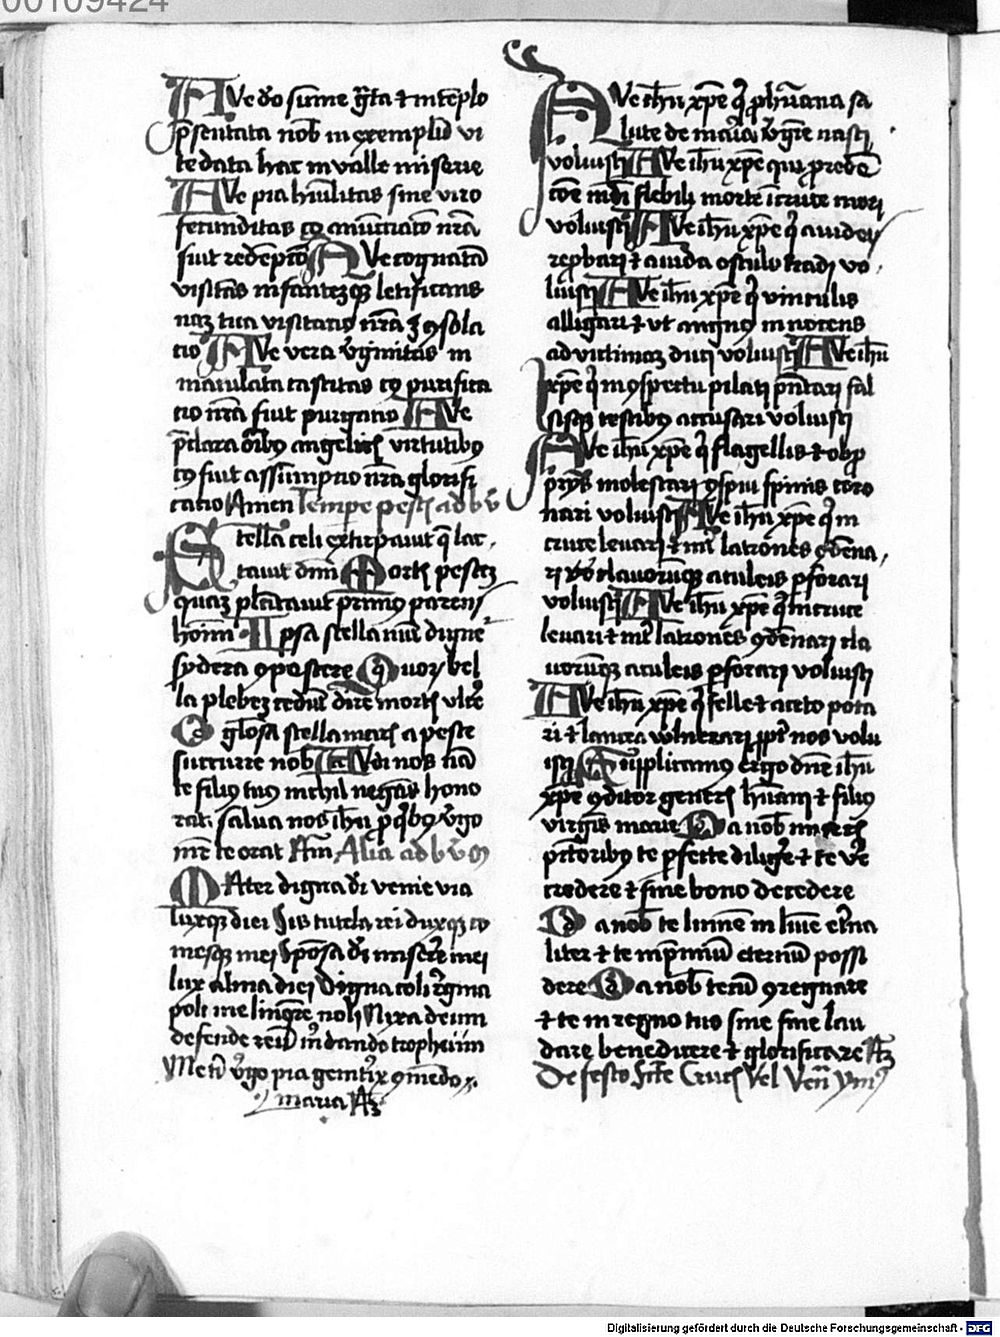 00109424
Ave deo sūme grata ⁊ in tēplo
p̄sentata nob̄ in exemplū vi
te data hac in valle miserie
Ave pia hūilitas sine viro
fecunditas cꝰ anūciatō nr̄a
fuit redēpcō Ave cognatā
visitās infantezqꝫ letificans
naꝫ tua visitatio nr̄a ꝫ ꝯsola
tio Ave vera v̓ginitas in
maculata castitas cꝰ purifica
tio nr̄a fiut purgatio Ave
p̄clara oībꝯ angelicꝭ virtutibꝯ
cꝰ fuit assūmptio nr̄a glorifi
catio Amen Tempe pestꝭ ad b v
Stella celi extirpauit q̄ lac
tauit dn̄m Mortꝭ pestez
quaꝫ plātauit prīmꝰ parens
hoīm Ipsa stella nūc digne
sydera ꝯpescere Quorꝝ bel
la plebeꝫ cedūt dire mortꝭ vlcē
O gl̄osa stella marꝭ a peste
succurre nob̄ Audi nos nā
te filiꝰ tuꝰ nichil negās hono
rat. salua nos ih̄u p̄ qͥbꝯ v̓go
mr̄ te orat Am̄ Alia ad b v̓ M
Mater digna dei venie via
luxqꝫ diei Sis tutela rei duxqꝫ co
mesqꝫ mei Sponsa dei miserē mei
lux alma diei Digna coli r̓gina
poli me linqͥre noli Nixa deum
defende reū mͥ dando tropheum
Me tū v̓go pia genitͥx ꝯmēdo
maria Am̄
Ave ih̄u xp̄e qͥ ꝓ hūana sa
lute de maria v̓gīe nasci
voluisti Ave ih̄u xp̄e qui ꝓ redē
cōe mūdi flebili morte ī cruce mori
voluisti Ave ih̄u xp̄e qͥ a iudeis
reꝓbari ⁊ a iuda osculo tradi vo
luisti Ave ih̄u xp̄e qͥ vinculis
alligari ⁊ vt angnꝰ innocens
ad victimaꝫ duci voluisti Ave ih̄u
xp̄e qͥ in ꝯspectu pilati p̄ntari fal
sisqꝫ testibꝯ accusari voluisti
Ave ih̄u xp̄e qͥ flagellis ⁊ obꝓ
prijs molestari ꝯspui spinis coro
nari voluisti Ave ih̄u xp̄e qͥ in
cruce leuari ⁊ int̓ latrones ꝯdēna
ri clauorūqꝫ aculeis ꝑforari
voluisti Ave ih̄u xp̄e qͥ in cruce
leuari ⁊ int̓ latrones ꝯdēnari cla
uorūqꝫ aculeis ꝑforari voluisti
Ave ih̄u xp̄e qͥ felle ⁊ aceto pota
ri ⁊ lancea wlnerari ꝓpt̓ nos volu
isti Supplicamꝰ ergo dn̄e ih̄u
xp̄e ꝯditor generꝭ hūani ⁊ filiꝰ
virgīs marie Da nob̄ miserꝭ
pctōribꝯ te ꝑfecte diligē ⁊ te vē
credere ⁊ sine bono decedere
Da nob̄ te lumē in lūīe et̓na
liter ⁊ te in p̄miū eternū possi
dere Da nob̄ tecū ꝯregnare
⁊ te in regno tuo sine fine lau
dare benedicere ⁊ glorificare Am̄
De festo Scē Crucꝭ Vel Ven̄ ymꝰ
Digitalisierung gefördert durch die Deutsche Forschungsgemeinschaft - DFG